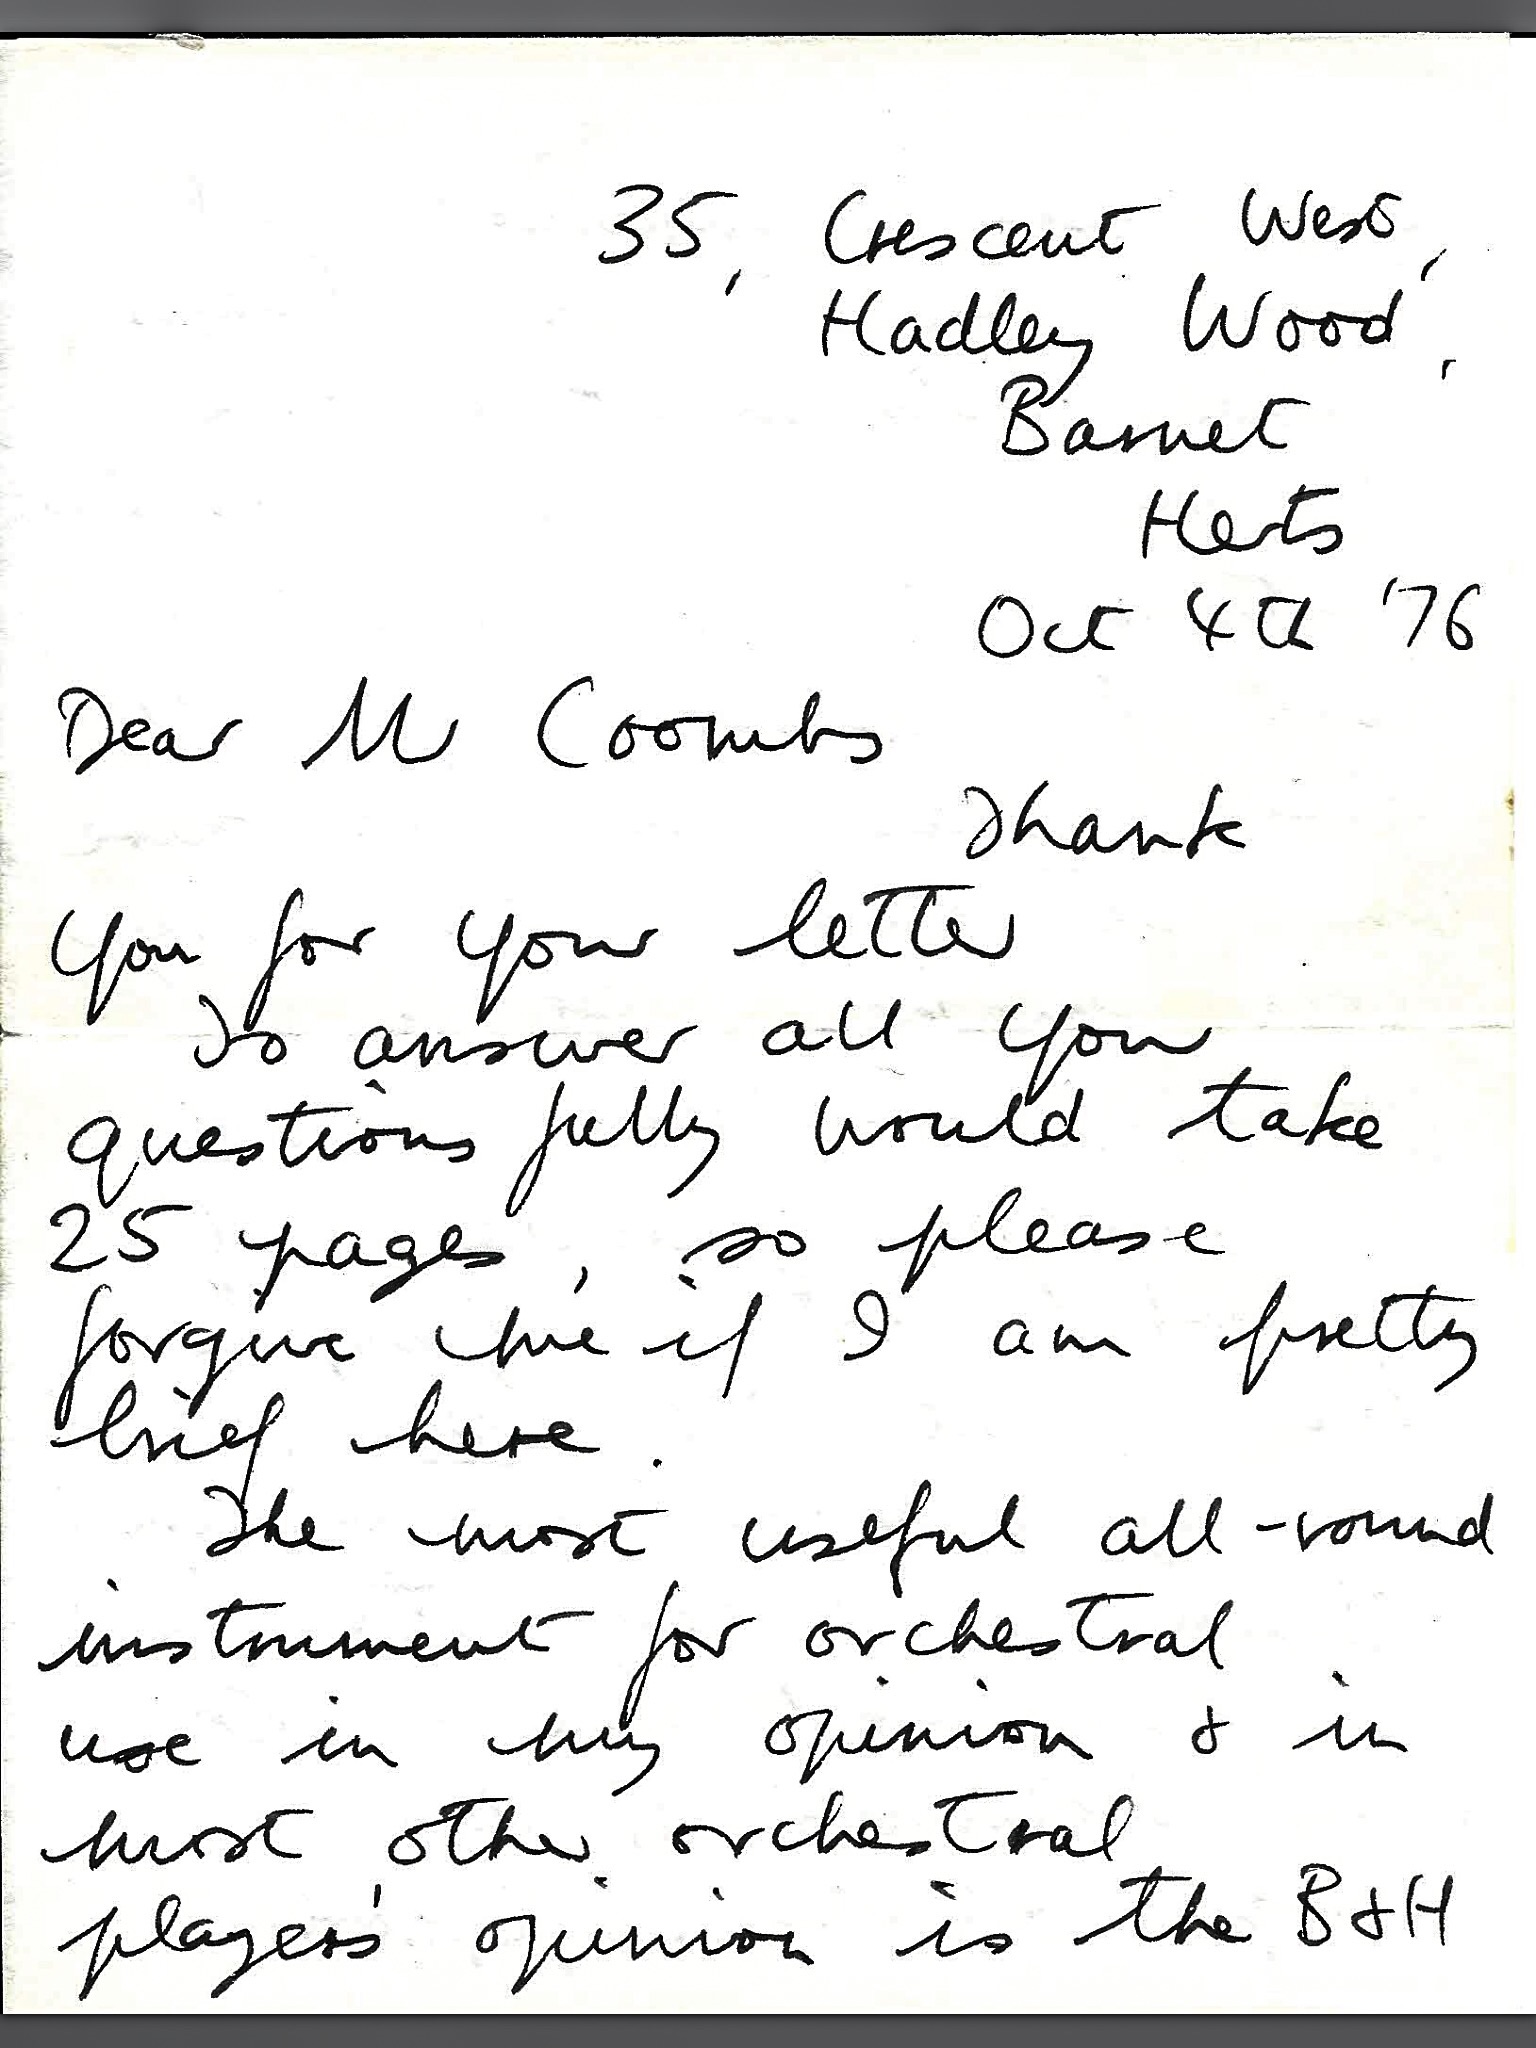 35, Crescent West,
Hadley Wood,
Barnet
Herts
Oct 4th '76
Dear Mr Coombs
Thank
you for your letter
To answer all your
questions fully would take
25 pages, so please
forgive me if I am pretty
brief here.
The most useful all-round
instrument for orchestral
use in my opinion & in
most other orchestral
players' opinion is the B&H